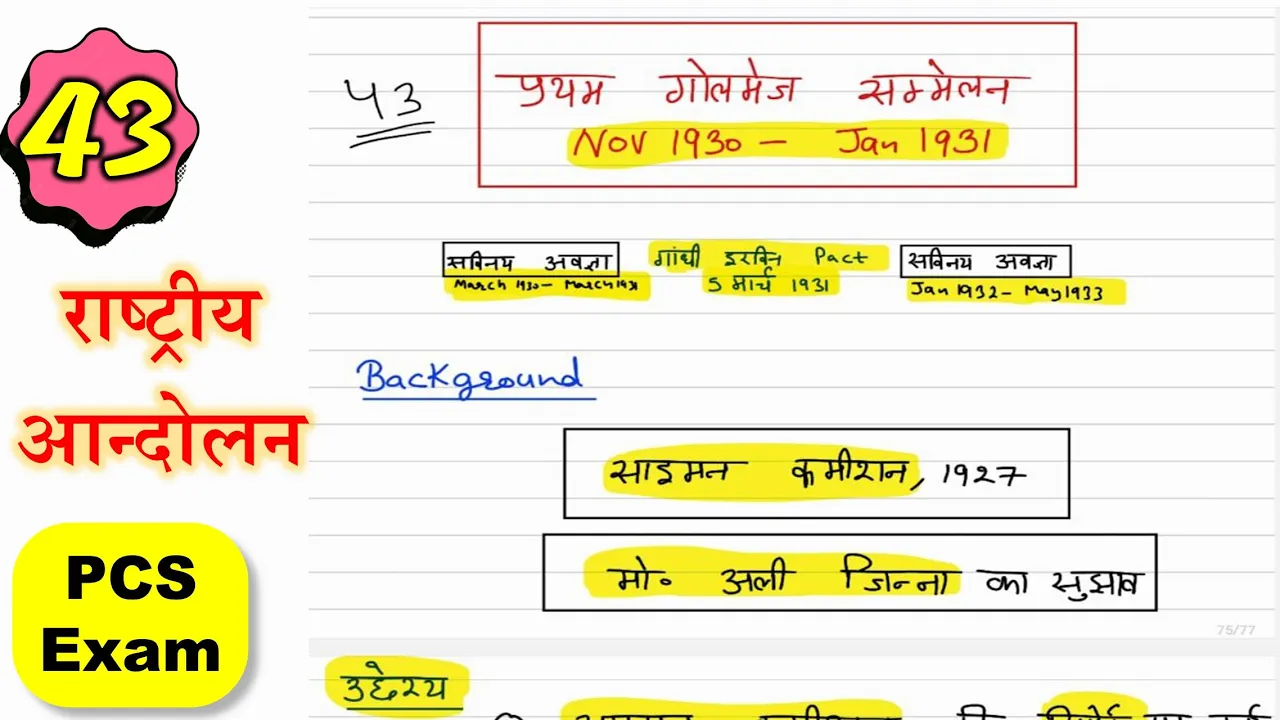 43
राष्ट्रीय
आन्दोलन
PCS
Exam
43
प्रथम गोलमेज सम्मेलन
Nov 1930 – Jan 1931
सविनय अवज्ञा
March 1930 – March 1931
गांधी इरविन Pact
5 मार्च 1931
सविनय अवज्ञा
Jan 1932 – May 1933
Background
साइमन कमीशन, 1927
मो० अली जिन्ना का सुझाव
75/77
उद्देश्य